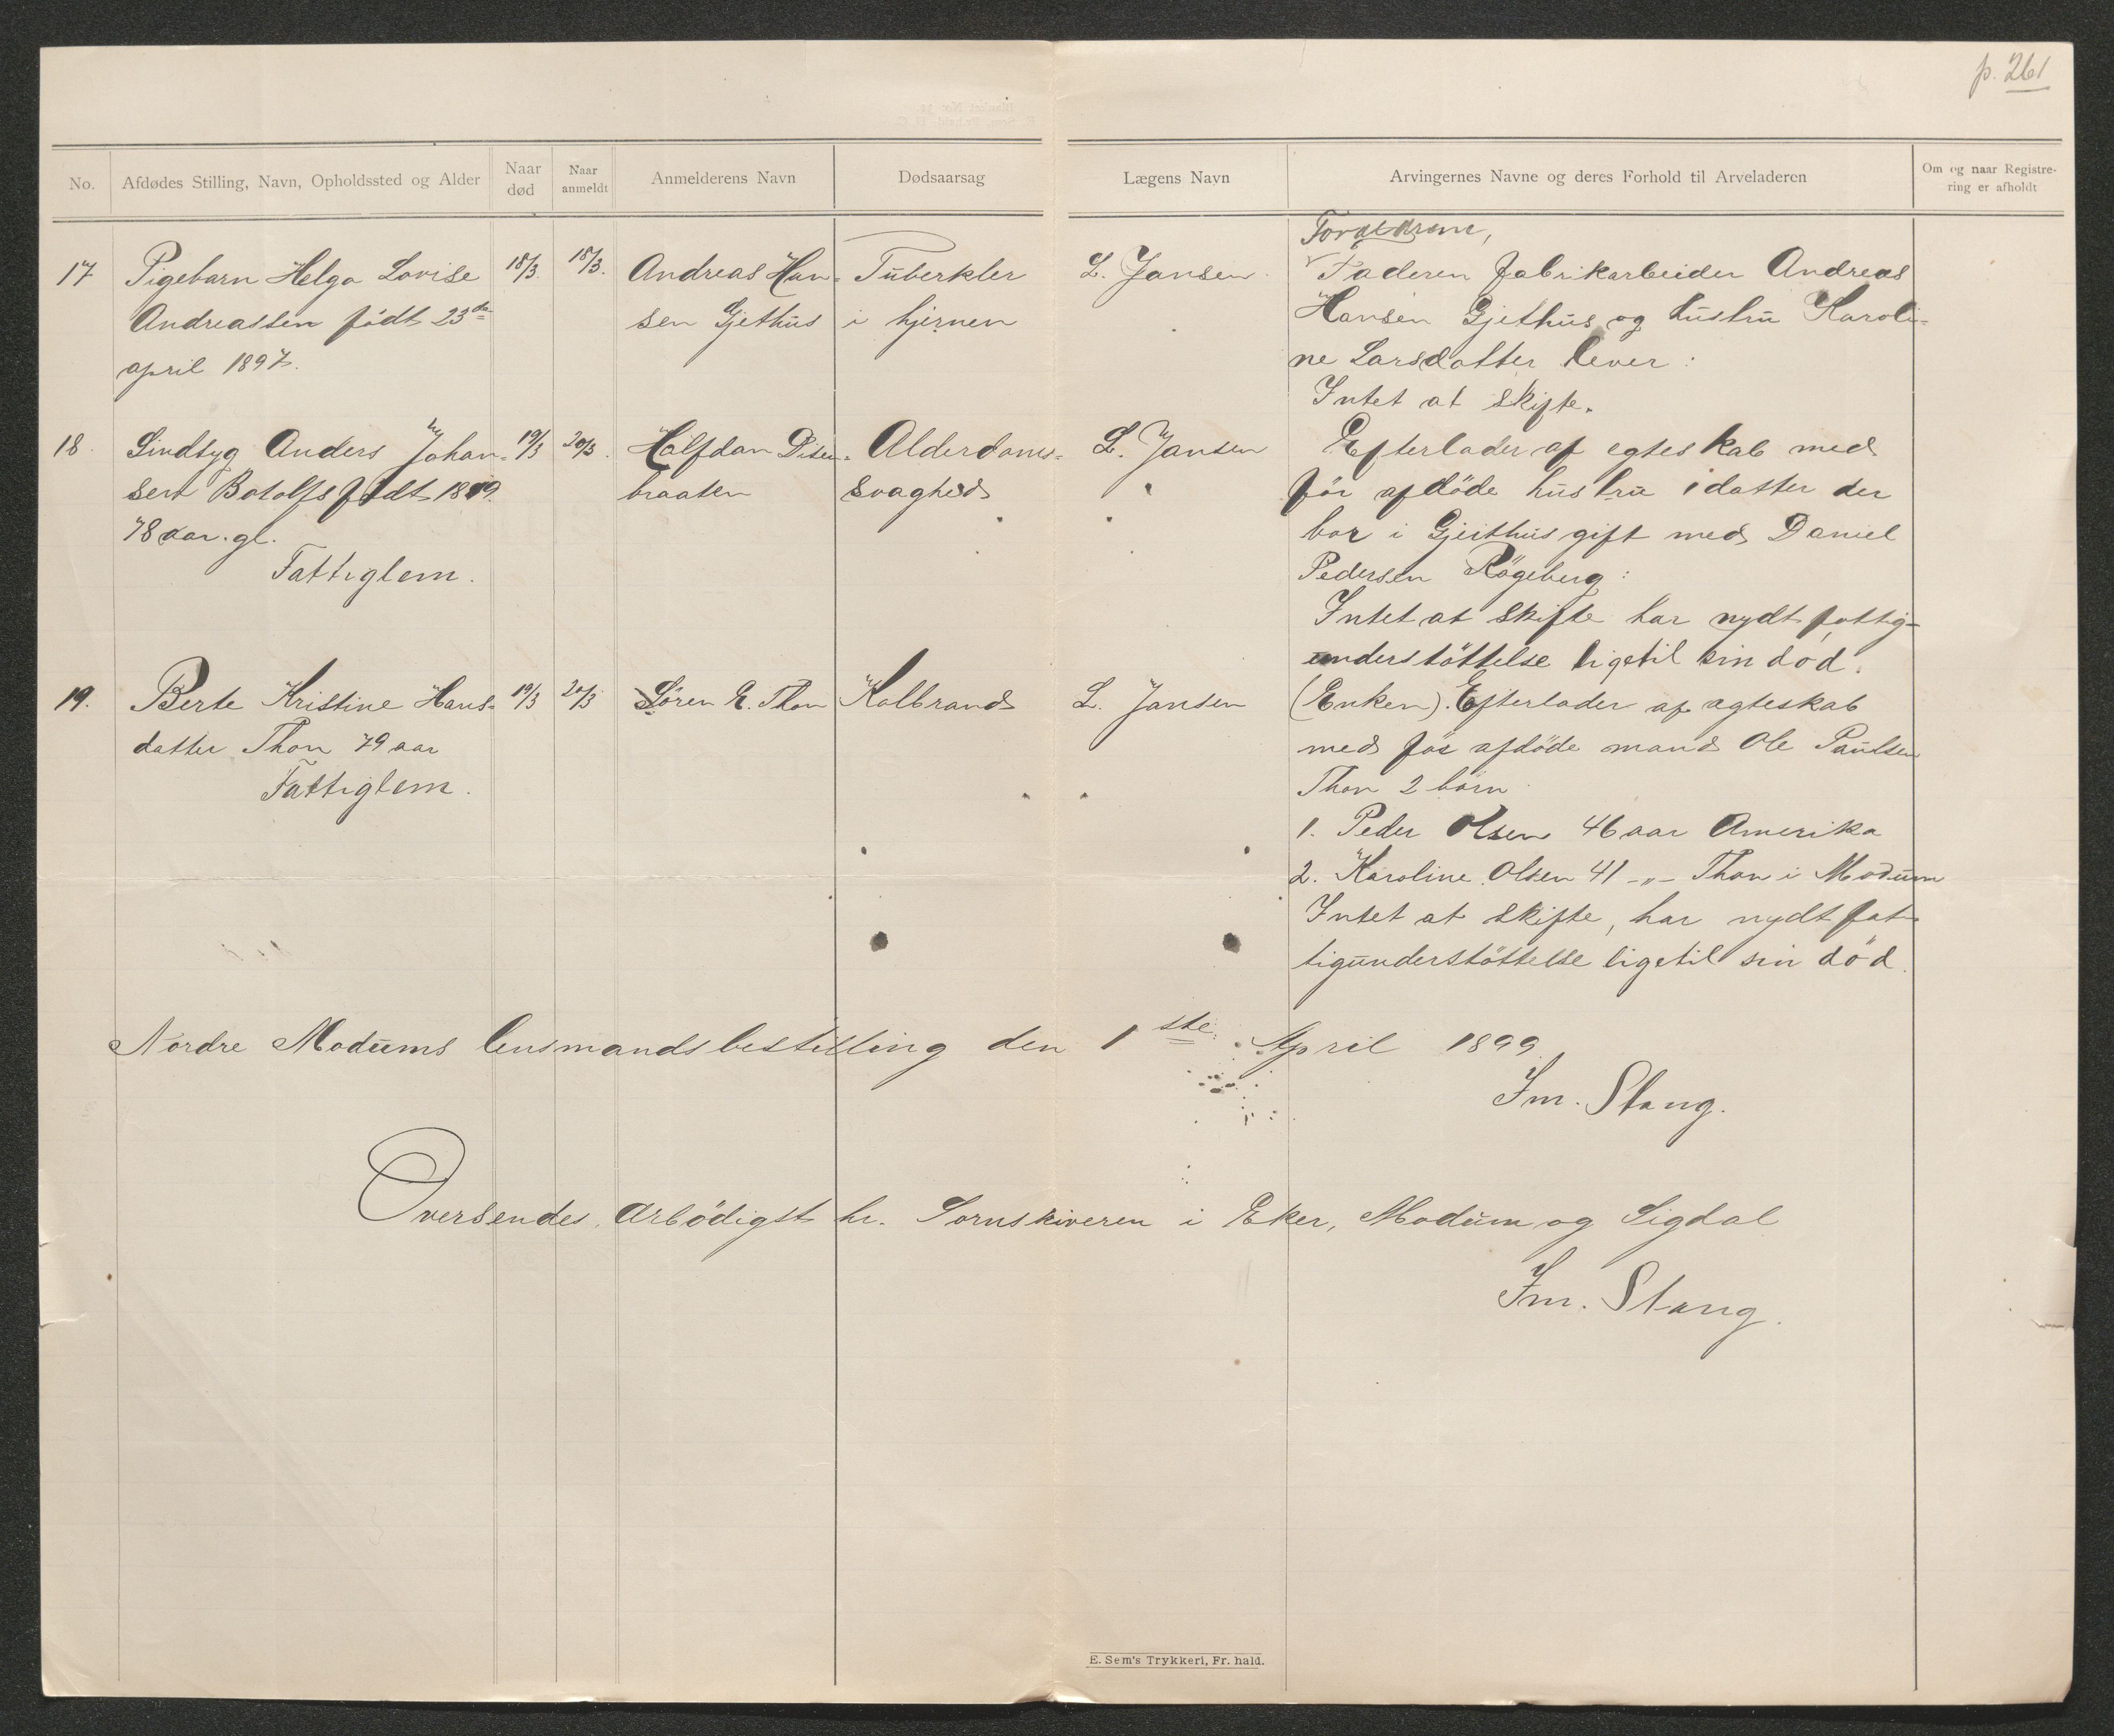 p. 261
No.
Afdødes Stilling, Navn, Opholdssted og Alder
Naar død
Naar anmeldt
Anmelderens Navn
Dødsaarsag
Lægens Navn
Arvingernes Navne og deres Forhold til Arveladeren
Om og naar Registre-
ring er afholdt
17 Pigebarn Helga Lovise 18/3. 18/3. Andreas Han- Tuberkler L. Jansen
Andreassen født 23de sen Gjethus i hjernen
april 1897.
Forældrene,
Faderen fabrikarbeider Andreas
Hansen Gjethus og hustru Karoli-
ne Larsdatter lever:
Intet at skifte.
18. Sindsyg Anders Johan- 19/3 20/3. Halfdan Disen- Alderdoms- L. Jansen
sen Botolfs født braaten svaghed
78 aar. gl.
Fattiglem.
Efterlader af egteskab med
før afdøde hustru 1 datter der
bor i Gjeithus gift med Daniel
Pedersen Røgeberg:
Intet at skifte har nydt fattig-
understøttelse ligetil sin død.
19. Berte Kristine Hans- 19/3 20/3 Søren E. Thon Kolbrand L. Jansen
datter Thon 79 aar
Fattiglem.
(Enken). Efterlader af ægteskab
med før afdøde mand Ole Paulsen
Thon 2 børn
1. Peder Olsen 46 aar Amerika
2. Karoline Olsen 41 -„- Thon i Modum
Intet at skifte, har nydt fat-
tigunderstøttelse ligetil sin død.
Nordre Modums lensmandsbestilling den 1ste April 1899.
Im. Stang.
Oversendes ærbødigst hr. Sornskiveren i Eker, Modum og Sigdal
Im. Stang.
E. Sem's Trykkeri, Fr. hald.